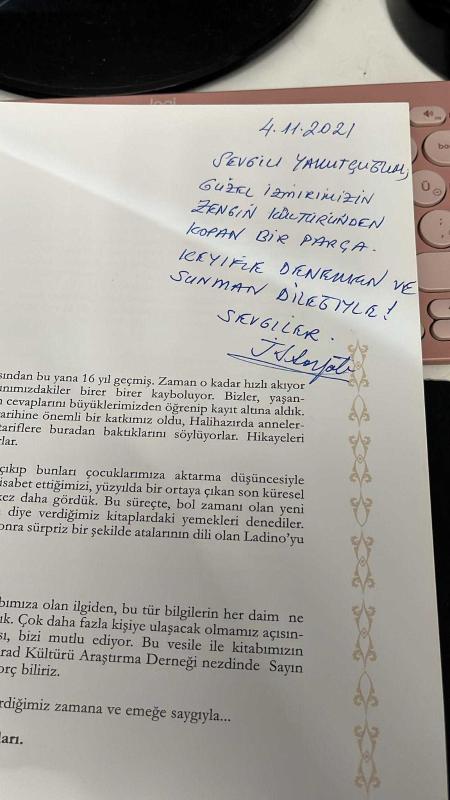 logi
4.11.2021
SEVGİLİ YAKUTÇUĞUM,
GÜZEL İZMİRİMİZİN
ZENGİN KÜLTÜRÜNDEN
KOPAN BİR PARÇA.
KEYİFLE DENEMEN VE
SUNMAN DİLEĞİYLE!
SEVGİLER.
sından bu yana 16 yıl geçmiş. Zaman o kadar hızlı akıyor
ınımızdakiler birer birer kayboluyor. Bizler, yaşan-
n cevaplarını büyüklerimizden öğrenip kayıt altına aldık.
tarihine önemli bir katkımız oldu, Halihazırda anneler-
tariflere buradan baktıklarını söylüyorlar. Hikayeleri
rlar.
çıkıp bunları çocuklarımıza aktarma düşüncesiyle
isabet ettiğimizi, yüzyılda bir ortaya çıkan son küresel
kez daha gördük. Bu süreçte, bol zamanı olan yeni
diye verdiğimiz kitaplardaki yemekleri denediler.
onra sürpriz bir şekilde atalarının dili olan Ladino'yu
bımıza olan ilgiden, bu tür bilgilerin her daim ne
ık. Çok daha fazla kişiye ulaşacak olmamız açısın-
sı, bizi mutlu ediyor. Bu vesile ile kitabımızın
arad Kültürü Araştırma Derneği nezdinde Sayın
orç biliriz.
rdiğimiz zamana ve emeğe saygıyla...
ları.